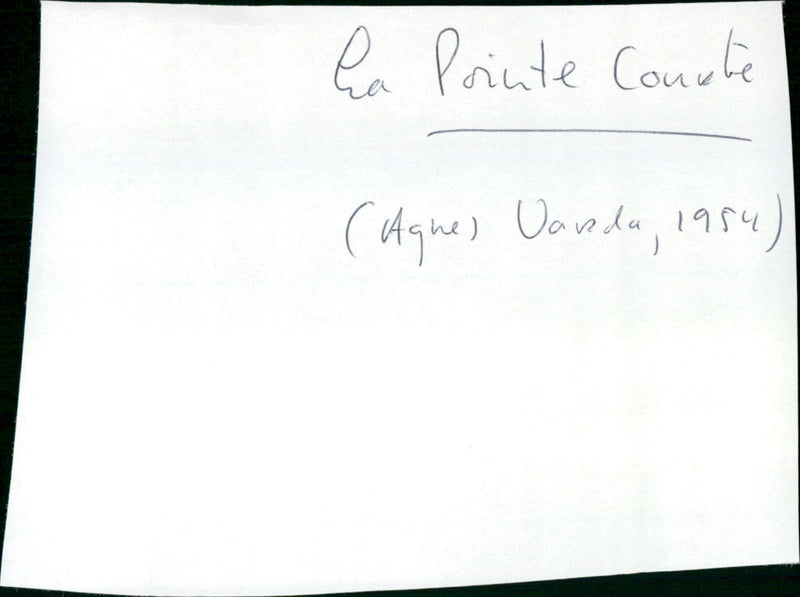 La Pointe Courte
(Agnes Varda, 1954)